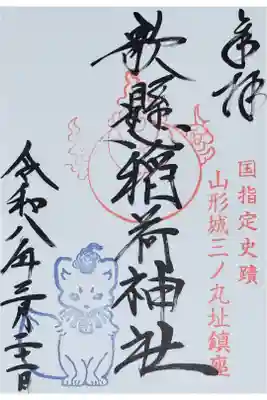 奉拝
国指定史蹟
山形城三ノ丸址鎮座
歌懸稲荷神社
令和八年三月二十一日